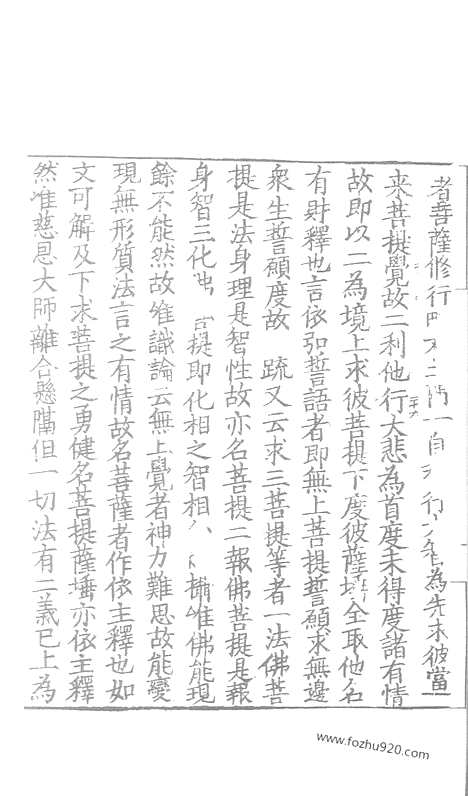 者菩薩修行門不二門一自利行大智為先求彼當
来菩提覺故二利他行大悲為首度未得度諸有情
故即以二為境上求彼菩提下度彼薩埵全取他名
有財釋也言依弘誓語者即無上菩提誓願求無邊
衆生誓願度故　疏又云求三菩提等者一法佛菩
提是法身理是智性故亦名菩提二報佛菩提是報
身智三化佛菩提即化相之智相　　唯佛能現
餘不能然故唯識論云無上覺者神力難思故能變
現無形質法言之有情故名菩薩者作依主釋也如
文可解及下求菩提之勇健名菩提薩埵亦依主釋
然准慈恩大師離合懸隔但一切法有二義已上為
www.fozhu920.com